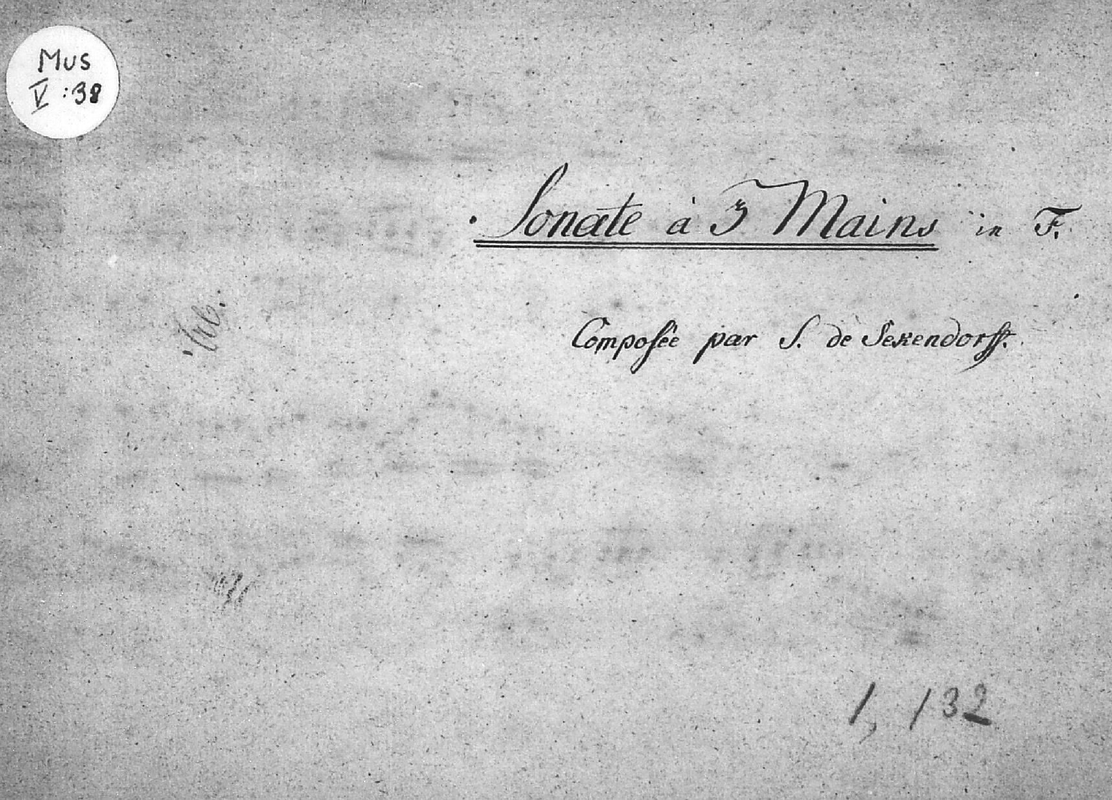 Mus
V:38
Sonate à 3 Mains in F.
Composée par S. de Sekendorff.
1, 132